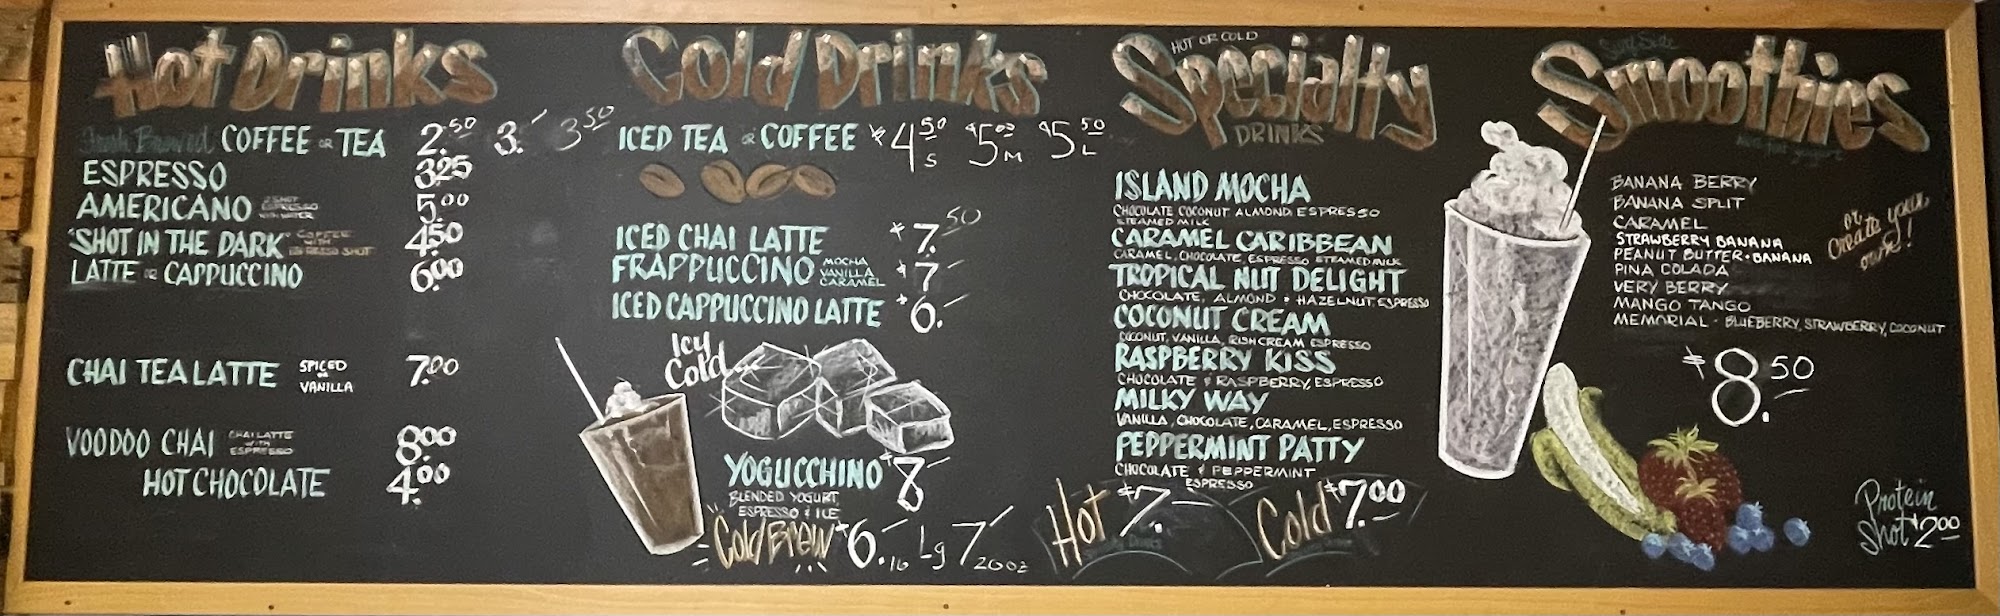 Hot Drinks
Fresh Brewed COFFEE OR TEA 2.50 3.- 3.50
ESPRESSO 3.25
AMERICANO 2 SHOT ESPRESSO WITH WATER 5.00
"SHOT IN THE DARK" COFFEE WITH ESPRESSO SHOT 4.50
LATTE OR CAPPUCCINO 6.00
CHAI TEA LATTE SPICED OR VANILLA 7.00
VOODOO CHAI CHAI LATTE WITH ESPRESSO 8.00
HOT CHOCOLATE 4.00
Cold Drinks
ICED TEA OR COFFEE $4.50 S $5.00 M $5.50 L
ICED CHAI LATTE $7.50
FRAPPUCCINO MOCHA VANILLA CARAMEL $7-
ICED CAPPUCCINO LATTE $6.-
Icy Cold
YOGUCCHINO $8-
BLENDED YOGURT
ESPRESSO & ICE
Cold Brew $6.- 16 Lg 7- 20oz
HOT OR COLD
Specialty
DRINKS
ISLAND MOCHA
CHOCOLATE COCONUT ALMOND ESPRESSO
STEAMED MILK
CARAMEL CARIBBEAN
CARAMEL, CHOCOLATE, ESPRESSO STEAMED MILK
TROPICAL NUT DELIGHT
CHOCOLATE, ALMOND & HAZELNUT, ESPRESSO
COCONUT CREAM
COCONUT, VANILLA, IRISH CREAM ESPRESSO
RASPBERRY KISS
CHOCOLATE & RASPBERRY, ESPRESSO
MILKY WAY
VANILLA, CHOCOLATE, CARAMEL, ESPRESSO
PEPPERMINT PATTY
CHOCOLATE & PEPPERMINT
ESPRESSO
Hot $7.- Cold $7.00
Surf Side
Smoothies
non fat yogurt
BANANA BERRY
BANANA SPLIT
CARAMEL
STRAWBERRY BANANA
PEANUT BUTTER·BANANA
PINA COLADA
VERY BERRY
MANGO TANGO
MEMORIAL - BLUEBERRY, STRAWBERRY, COCONUT
or
Create your
own!
$8.50
Protein
Shot $2.00